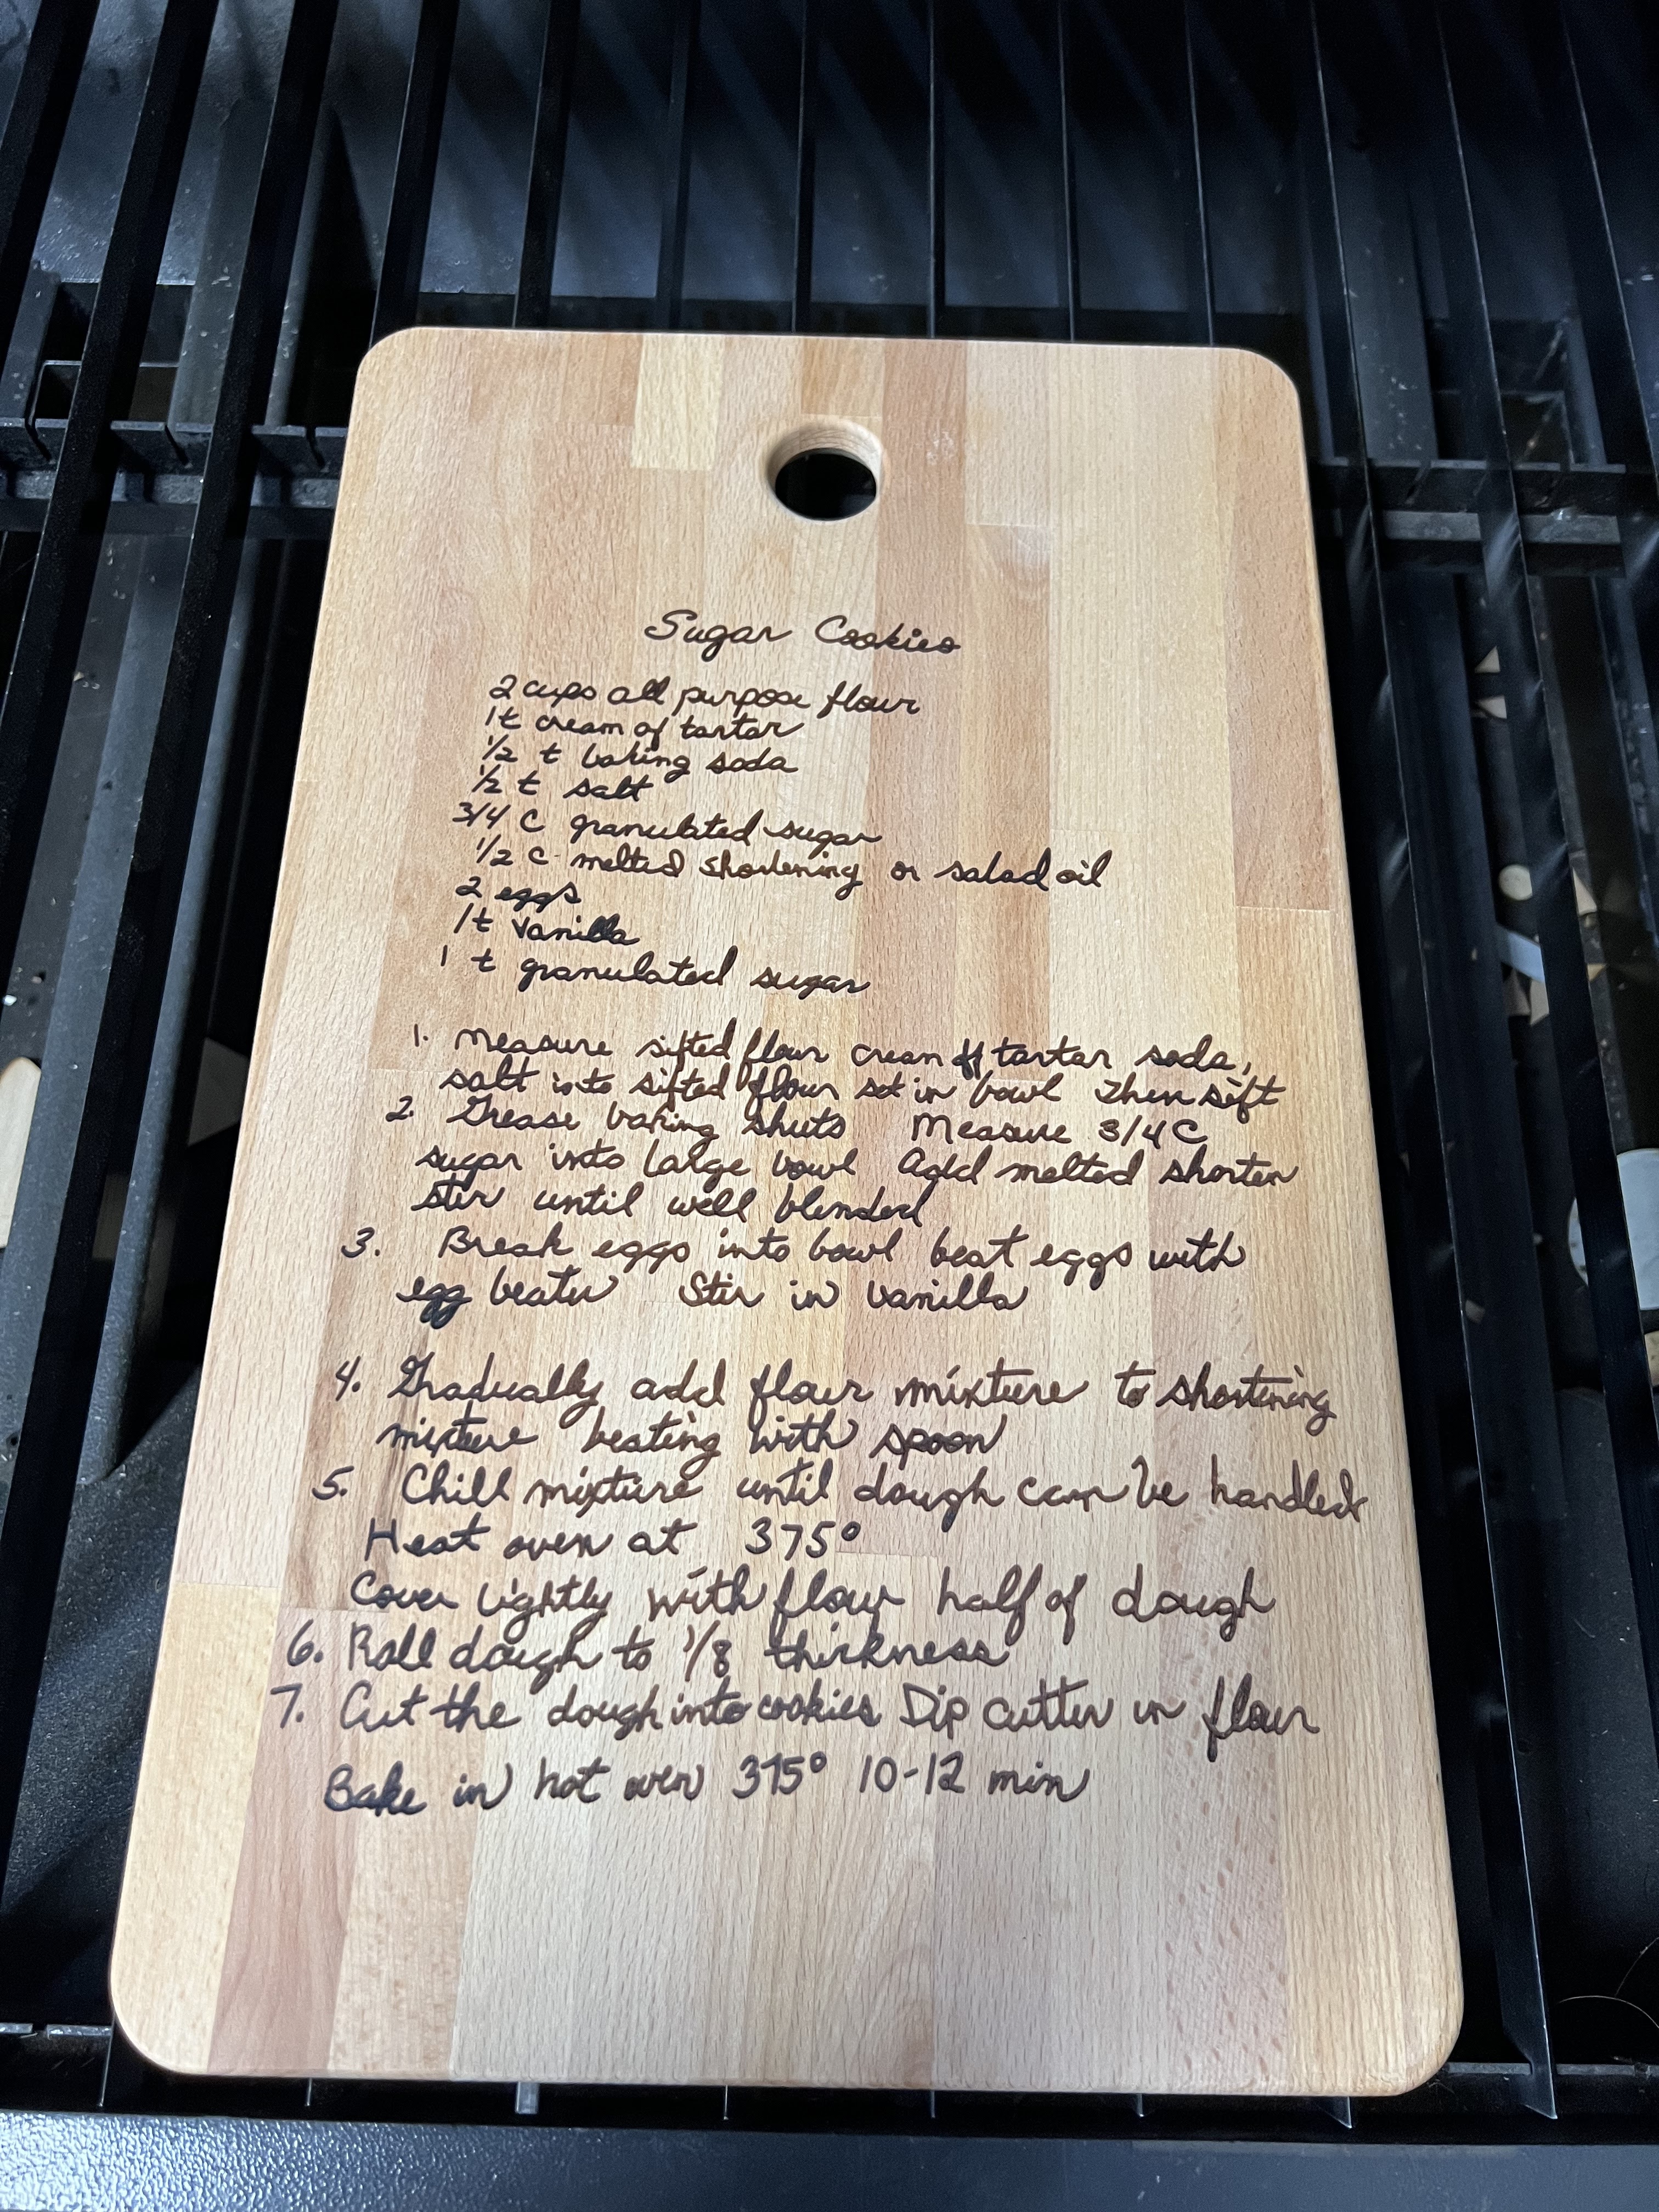 Sugar Cookies
2 cups all purpose flour
1 t cream of tartar
1/2 t baking soda
1/2 t salt
3/4 C granulated sugar
1/2 C melted shortening or salad oil
2 eggs
1 t vanilla
1 t granulated sugar
1. Measure sifted flour cream of tartar soda,
salt into sifted flour set in bowl Then sift
2. Grease baking sheets Measure 3/4 C
sugar into large bowl Add melted shorten
stir until well blended
3. Break eggs into bowl beat eggs with
egg beater Stir in vanilla
4. Gradually add flour mixture to shortening
mixture beating with spoon
5. Chill mixture until dough can be handled
Heat oven at 375°
Cover lightly with flour half of dough
6. Roll dough to 1/8 thickness
7. Cut the dough into cookies Dip cutter in flour
Bake in hot oven 375° 10-12 min